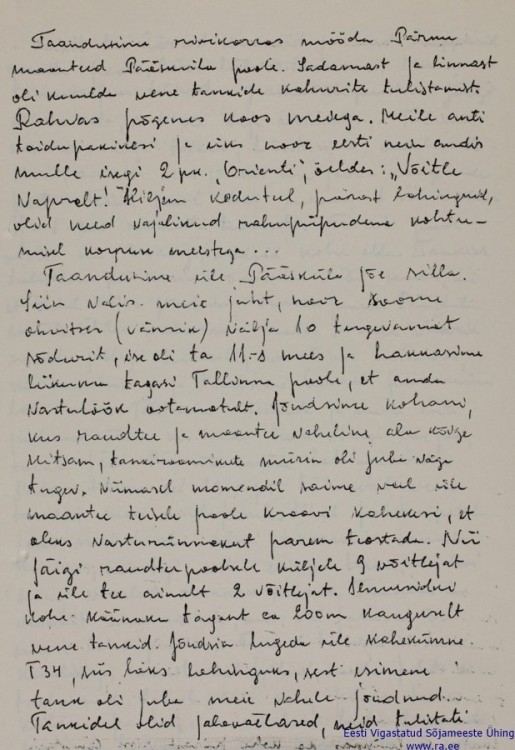 Taandusime rivikorras mööda Pärnu
maanteed Pääsküla poole. Sadamast ja linnast
oli kuulda vene tankide kahurite tulistamist.
Rahvas põgenes koos meiega. Meile anti
toidupakikesi ja üks noor eesti neiu andis
mulle isegi 2 pk. „Orienti", öeldes: „Võitle
vapralt! Hiljem koduteel, pärast lahinguid,
olid need vajalikud rahupiipudena kohtu-
misel korpuse meestega ...
Taandusime üle Pääsküla jõe silla.
Siin valis meie juht, noor Soome
ohvitser (vänrik) välja 10 tugevamat
sõdurit, ise oli ta 11-s mees ja hakkasime
liikuma tagasi Tallinna poole, et anda
vastulöök ootamatult. Jõudsime kohani,
kus raudtee ja maantee vaheline ala kõige
kitsam, tankiroomikute mürin oli juba väga
tugev. Viimasel momendil saime veel üle
maantee teisele poole kraavi kahekesi, et
oleks vasturünnakut parem teostada. Nii
jäigi raudteepoolsele küljele 9 võitlejat
ja üle tee ainult 2 võitlejat. Ilmusidki
kohe käänaku tagant ca 200m kauguselt
vene tankid. Jõudsin lugeda üle kahekümne
T34, siis läks lahinguks, sest esimene
tank oli juba meie vahele jõudnud.
Tankidel olid jalaväelased, neid tulistati
Eesti Vigastatud Sõjameeste Ühing
www.ra.ee